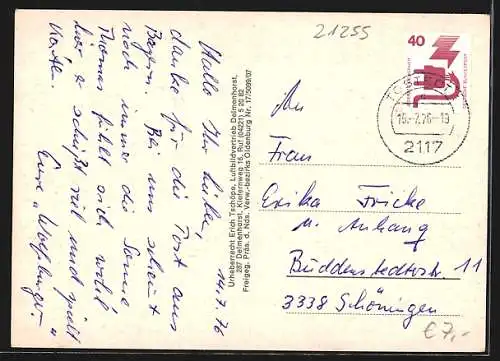 21255
14.7.76
Hallo Ihr Lieben,
danke für die Post aus
Bayern. Bei uns scheint
noch immer die Sonne
Thomas fühlt sich wohl
hier, er schläft viel und spielt
Eure "Wolfsburger"
Urheberrecht Erich Tschöpe, Luftbildvertrieb Delmenhorst,
287 Delmenhorst, Kiefernweg 15, Ruf (04221) 5 20 82
Freigeg. Präs. d. Nds. Verw.-bezirks Oldenburg Nr. 17/509/07
40
DEUTSCHE BUNDESPOST
TOSTEDT
15.-7.76-13
2117
An
Frau
Erika Fricke
u. Anhang
Büddenstedterstr. 11
3338 Schöningen
€7,-